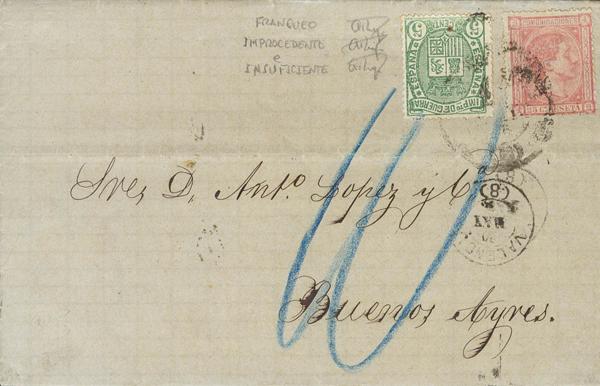 FRANQUEO
IMPROCEDENTE
e
INSUFICIENTE
5 5
ESPAÑA ESPAÑA
IMPTO DE GUERRA
COMUNICACIONES
PESETA
Sres D. Anto. Lopez y Ca
(8)
MAY
VALENCIA
Buenos Ayres.